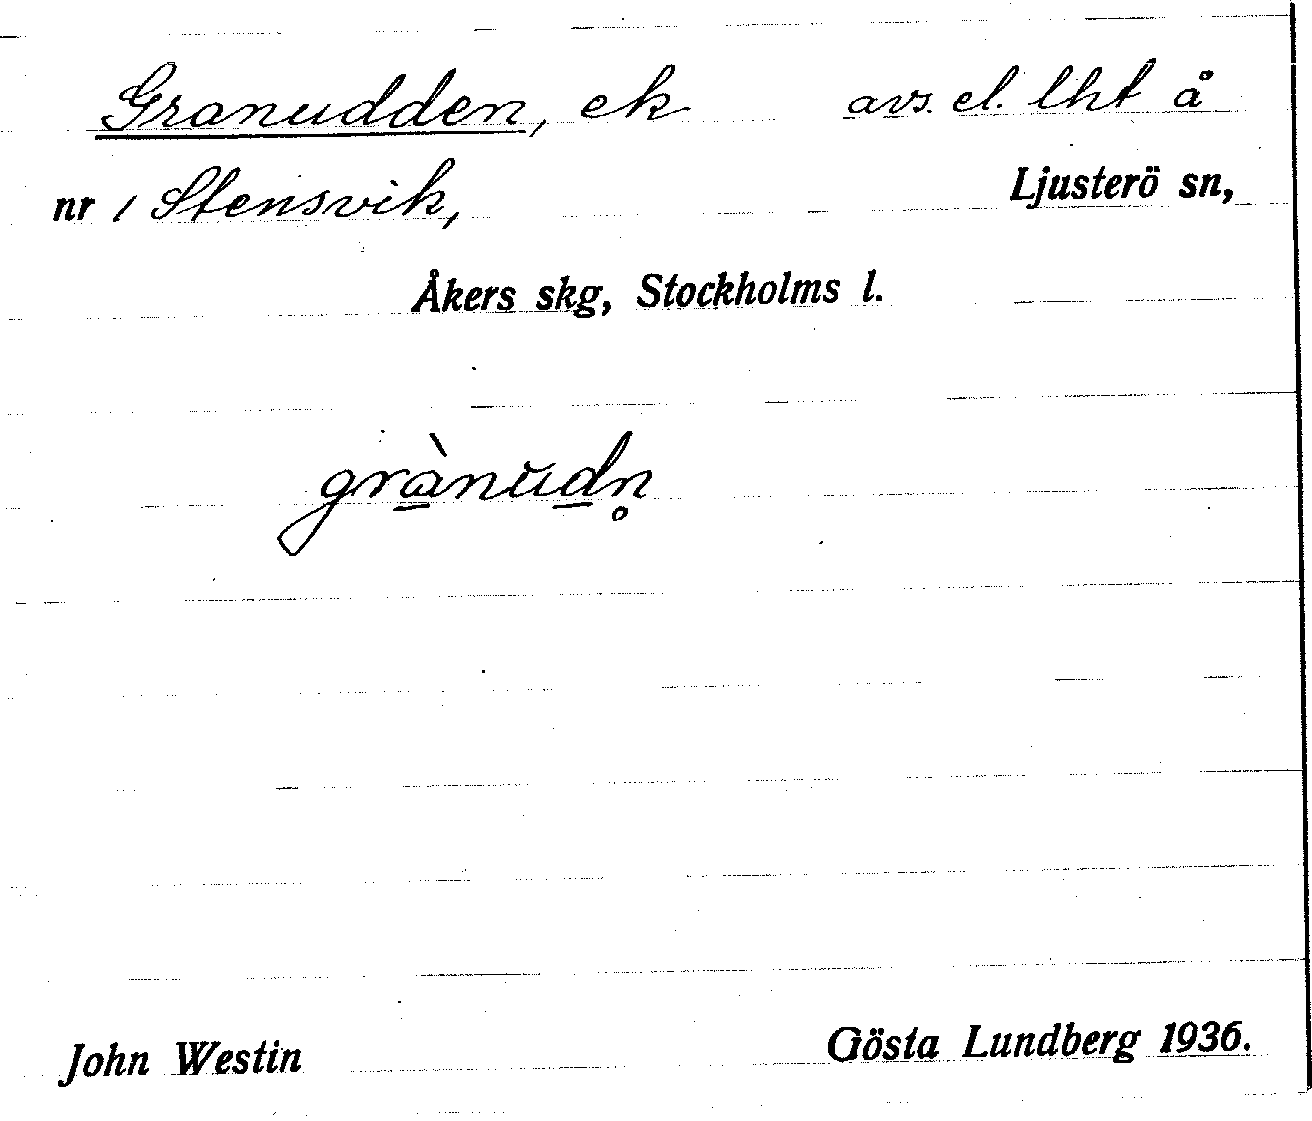 Granudden, ek avs. el. lht å
nr 1 Stensvik, Ljusterö sn,
Åkers skg, Stockholms l.
grànŭdn̥
John Westin Gösta Lundberg 1936.